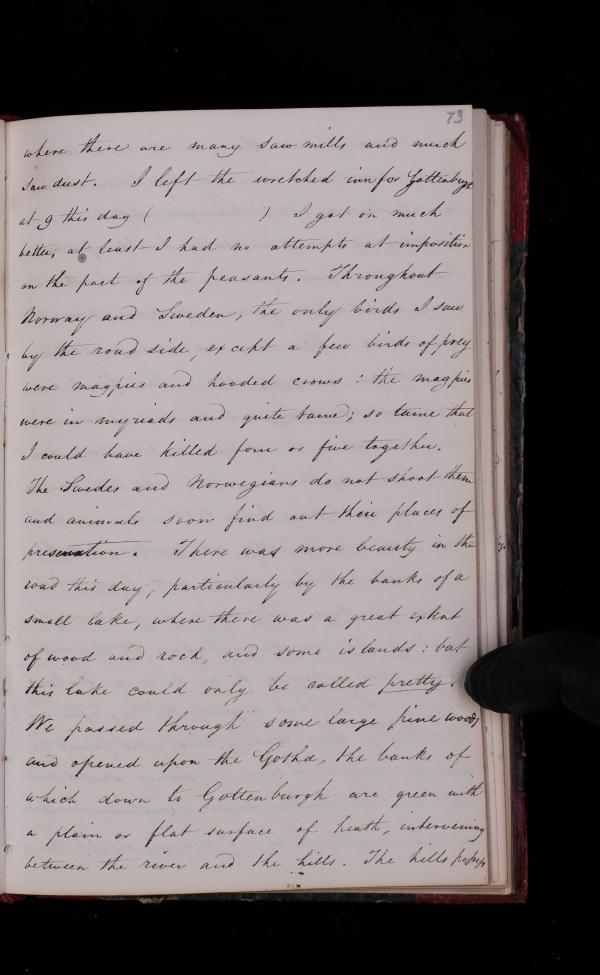 73
where there are many saw mills and much
saw dust. I left the wretched inn for Gottenburgh
at 9 this day ( ) I got on much
better; at least I had no attempts at imposition
on the part of the peasants. Throughout
Norway and Sweden, the only birds I saw
by the road side, except a few birds of prey
were magpies and hooded crows: the magpies
were in myriads and quite tame; so tame that
I could have killed four or five together.
The Swedes and Norwegians do not shoot them
and animals soon find out their places of
preservation. There was more beauty in the
road this day, particularly by the banks of a
small lake, where there was a great extent
of wood and rock, and some islands: but
this lake could only be called pretty.
We passed through some large pine woods
and opened upon the Gotha, the banks of
which down to Gottenburgh are green with
a plain or flat surface of heath, intervening
between the river and the hills. The hills